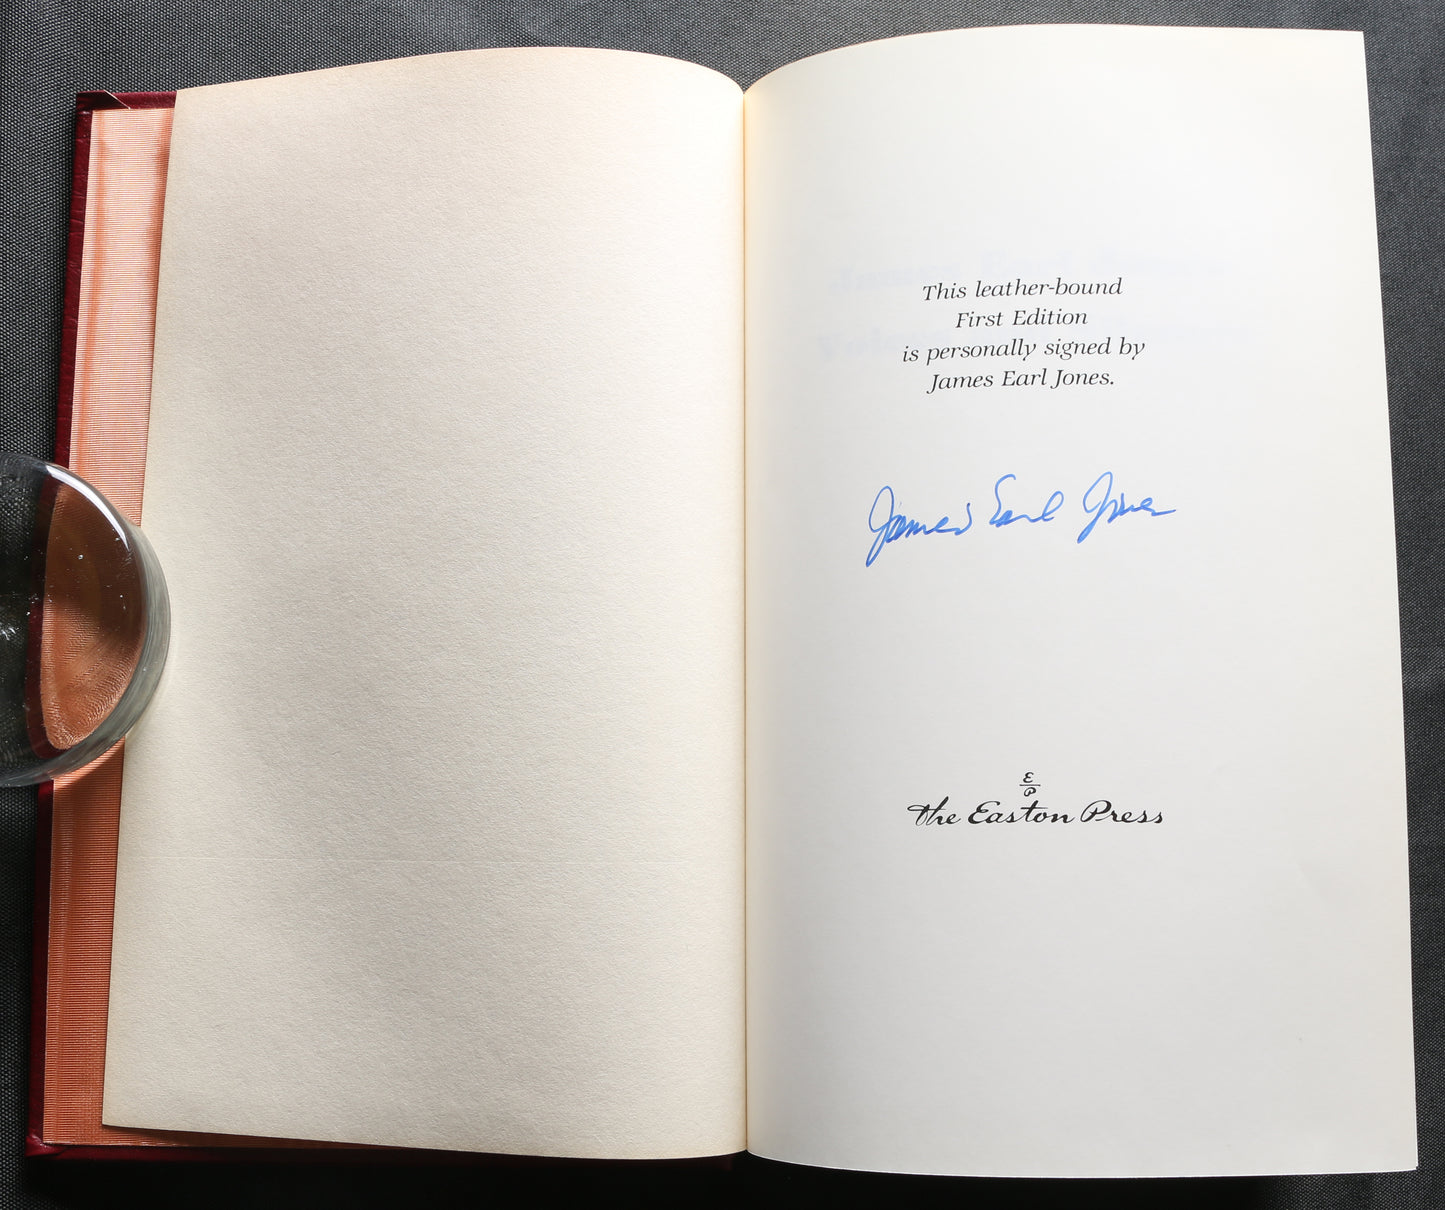 This leather-bound
First Edition
is personally signed by
James Earl Jones.
James Earl Jones
E
P
The Easton Press